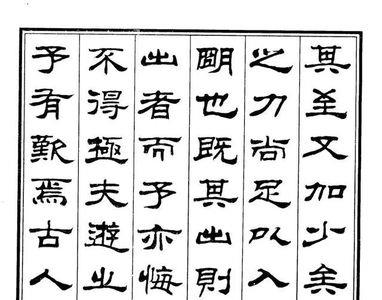 其至又加少矣
之力尚足以入
朙也既其出則
出者而予亦悔
不得極夫遊之
予有歎焉古人